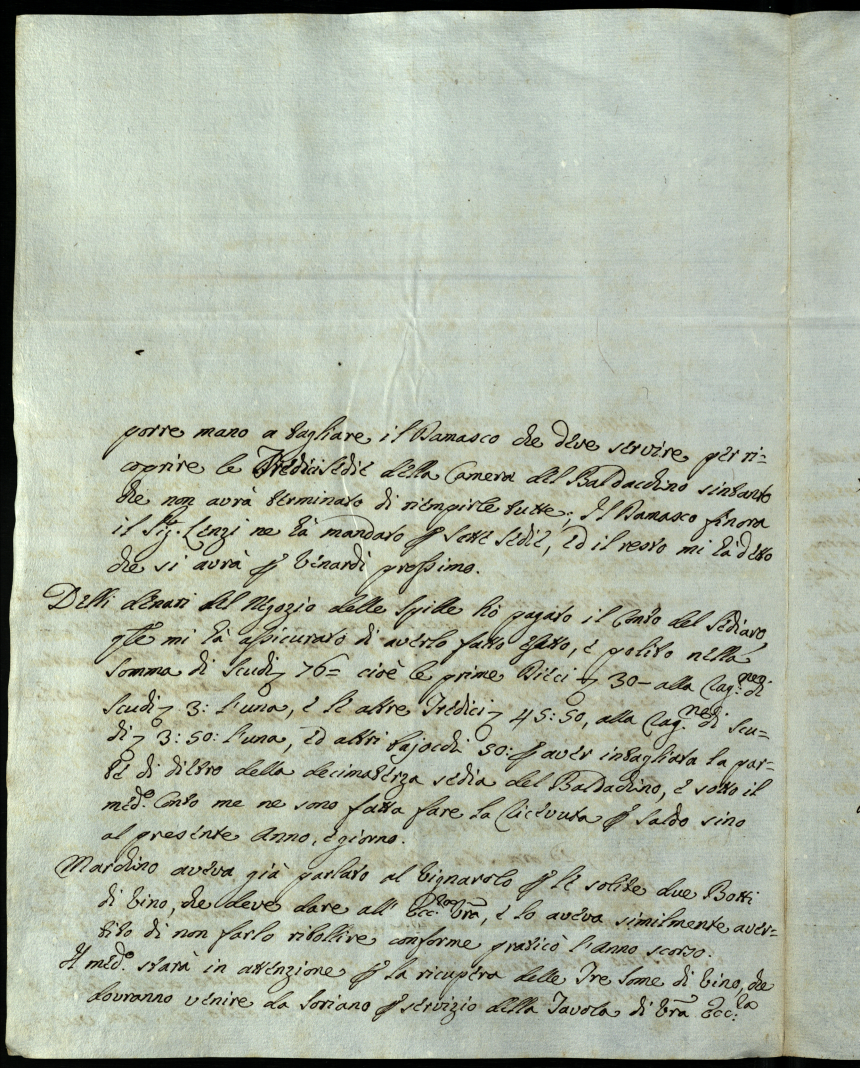 porre mano a tagliare il Damasco che deve servire per ri=
coprire le Tredici sedie della Camera del Baldacchino sintanto
che non avrà terminato di riempirle tutte; Il Damasco finora
il Sig.r Lenzi ne hà mandato p sette sedie, ed il resto mi hà detto
che si avrà p Venardì prossimo.
Delli denari del Negozio delle Spille hò pagato il Conto del Sediaro,
q͠le mi hà assicurato di averlo fatto esatto, e polito nella
somma di Scudi 76= cioè le prime Dieci 30- alla rag.ne di
scudi 3: l'una, e le altre Tredici 45:50, alla rag.ne di scu=
di 3:50: l'una, ed altri bajocchi 50: p aver intagliata la par=
te di dietro della decimaterza sedia del Baldachino, e sotto il
med.o Conto me ne sono fatta fare la Ricevuta p saldo sino
al presente Anno, e giorno.
Marchino aveva già parlato al Vignarolo p le solite due Botti
di Vino, che deve dare all' V͠ra, e lo aveva similmente aver=
tito di non farlo ribollire conforme praticò l'Anno scorso.
Il med.o starà in attenzione p la ricupera delle Tre Some di Vino, che
dovranno venire da Soriano p servizio della Tavola di V͠ra Ecc:za